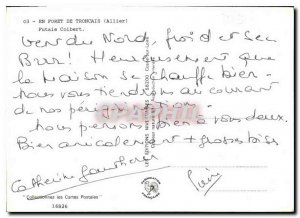 03 - EN FORET DE TRONCAIS (Allier)
Futaie Colbert.
vent du Nord, froid et sec
Brr! Heureusement que
la maison se chauffe bien.
nous vous tiendrons au courant
de nos
nous pensons bien à vous deux.
Bien amicalement + grosses bises
Catherine
"Collectionnez les Cartes Postales"
16826